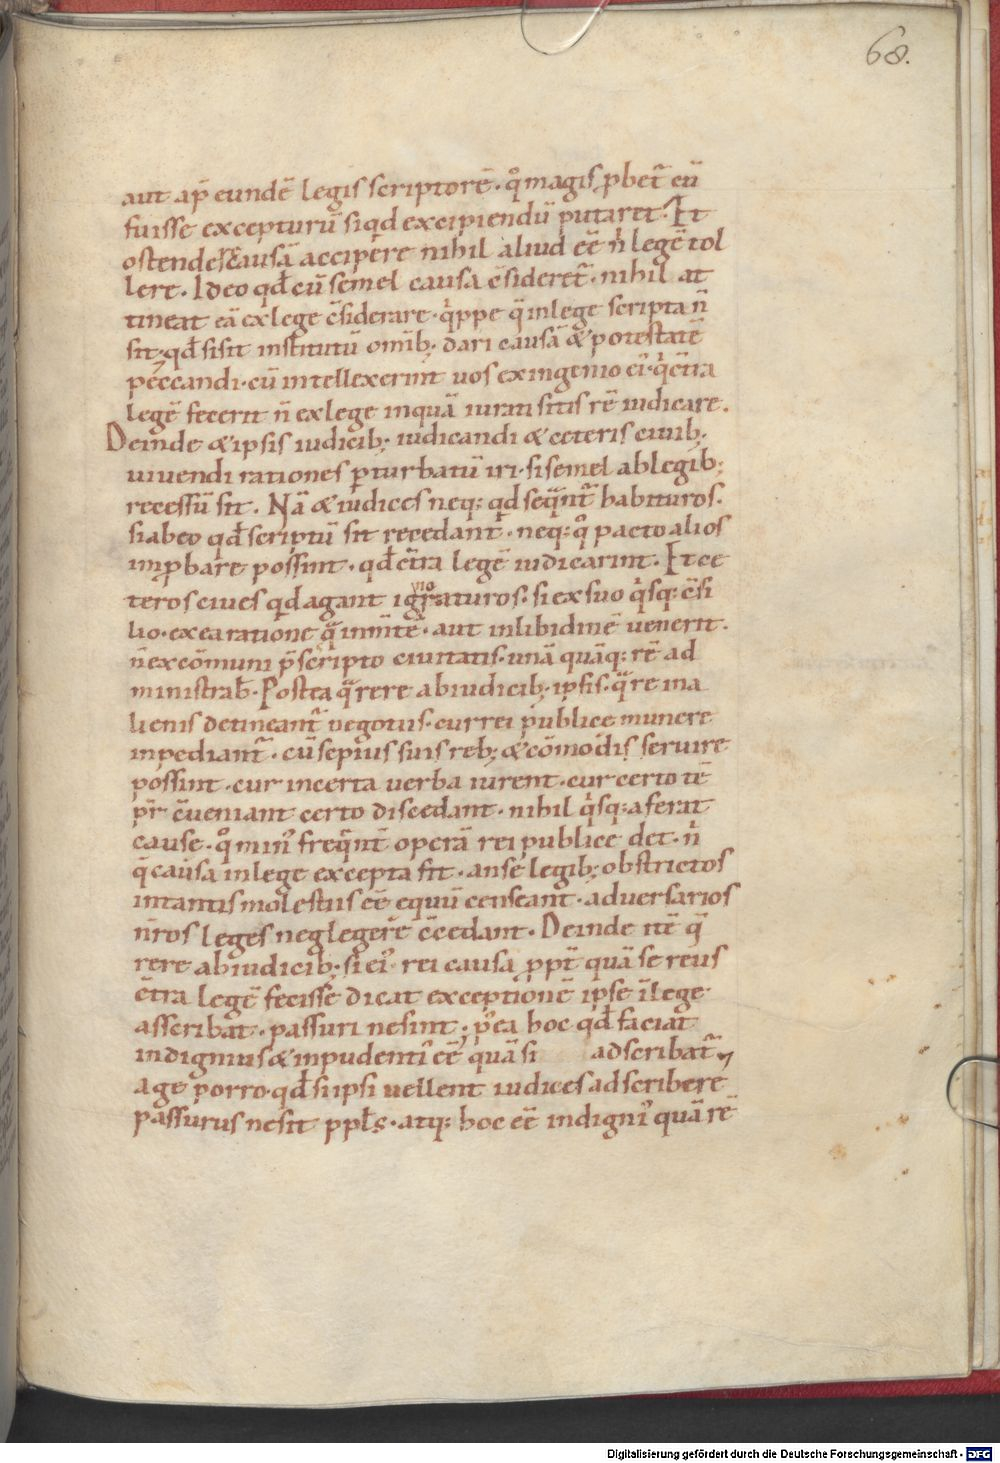 68.
aut ap̄ eundē legis scriptorē. qͦ magis ꝓbet᷑ eū
fuisse excepturū si qd excipiendū putaret. Et
ostendes causā accipere nihil aliud eē nͥ legē tol
lere. Ideo qđ cū semel causa c̄sideret᷑. nihil at
tineat eā ex lege c̄siderare. qͥppe q̄ in lege scripta n̄
sit. qđ si sit institutū omīb; dari causā & potestatē
peccandi. cū intellexerint uos ex ingenio ei᷒ qͥ c̄tra
legē fecerit n̄ ex lege in quā iurati sitis rē iudicare.
Deinde & ipsis iudicib; iudicandi & ceteris ciuib;
uiuendi rationes ꝑturbatū iri. si semel ab legib;
recessū sit. Nā & iudices neq; qd seq̄nt᷑ habituros.
si ab eo qđ scriptū sit recedant. neq; qͦ pacto alios
inꝓbare possint. qđ c̄tra legē iudicarint. Et ce
teros ciues qd agant ignoraturos. si ex suo qͥsq; c̄si
lio. ex ea ratione q̄ in m̄tē. aut in libidinē uenerit.
n̄ ex cōmuni p̄scripto ciuitatis. unā quāq; rē ad
ministrab̄. Postea q̄rere ab iudicib; ipsis. q̄re in a
lienis detineant᷑ negotiis. cur rei publice munere
inpediant᷑. cū sepius suis reb; & cōmodis seruire
possint. cur in certa uerba iurent. cur certo tē
pr̄ c̄ueniant certo discedant. nihil qͥsq; aferat
cause. qͦ min᷒ freq̄nt᷑ operā rei publice det. nͥ
q̄ causa in lege excepta sit. an se legib; obstrictos
in tantis molestiis eē equū censeant. aduersarios
n̄ros leges neglegere c̄cedant. Deinde itē q̄
rere ab iudicib; si ei᷒ rei causa ꝓpt̄ quā se reus
c̄tra legē fecisse dicat exceptionē ipse ī lege
asscribat. passuri ne sint. p̄ea hoc qđ faciat
indignius & inpudenti᷒ eē quā si adscribat᷑
age porro. qđ si ipsi uellent iudices adscribere
passurus ne sit ppl̄s. atq; hoc eē indigni᷒ quā rē
Digitalisierung gefördert durch die Deutsche Forschungsgemeinschaft - DFG